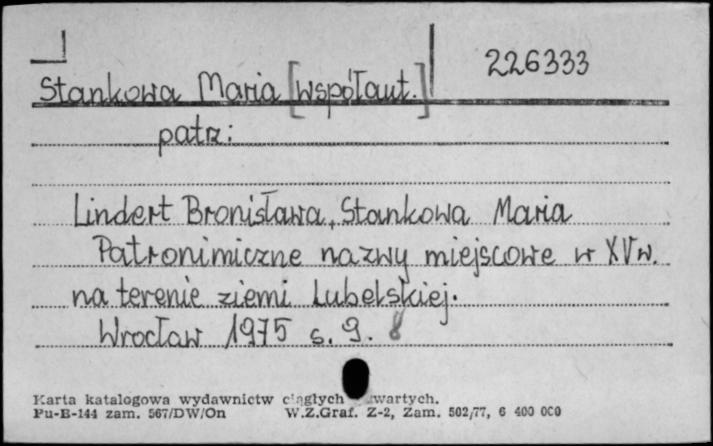 226333
Stankowa Maria [współaut.]
patrz:
Lindert Bronisława, Stankowa Maria
Patronimiczne nazwy miejscowe w XV w.
na terenie ziemi Lubelskiej.
Wrocław 1975 s. 9.
Karta katalogowa wydawnictw ciągłych wartych.
Pu-B-144 zam. 567/DW/On W.Z.Graf. Z-2, Zam. 502/77, 6 400 000